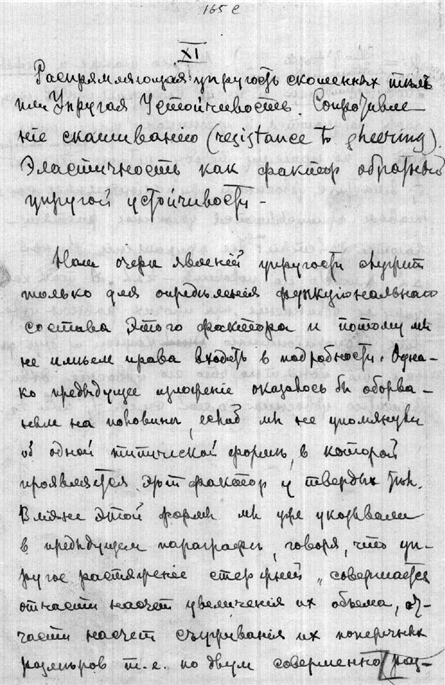 165 с
XI
Распрямляющая упругость скошенных тѣлъ
или Упругая Устойчивость. Сопротивле
ніе скашиванію (resistance to sheering).
Эластичность как фактор обратный
упругой устойчивости -
Наш очерк явленій упругости служит
только для опредѣленія функціональнаго
состава этого фактора и потому мы
не имѣем права входить в подробности. Одна-
ко предыдущее изложеніе оказалось бы оборва-
ным на половинѣ, если б мы не упомянули
об одной типической формѣ, в которой
проявляется этот фактор у твердых тѣл.
Вліяніе этой формы мы уже указывали
в предыдущем параграфѣ, говоря, что уп-
ругое растяженіе стержней „совершается
отчасти насчет увеличенія их объема, от-
части насчет съуживанія их поперечных
размѣров т.е. по двум совершенно раз-